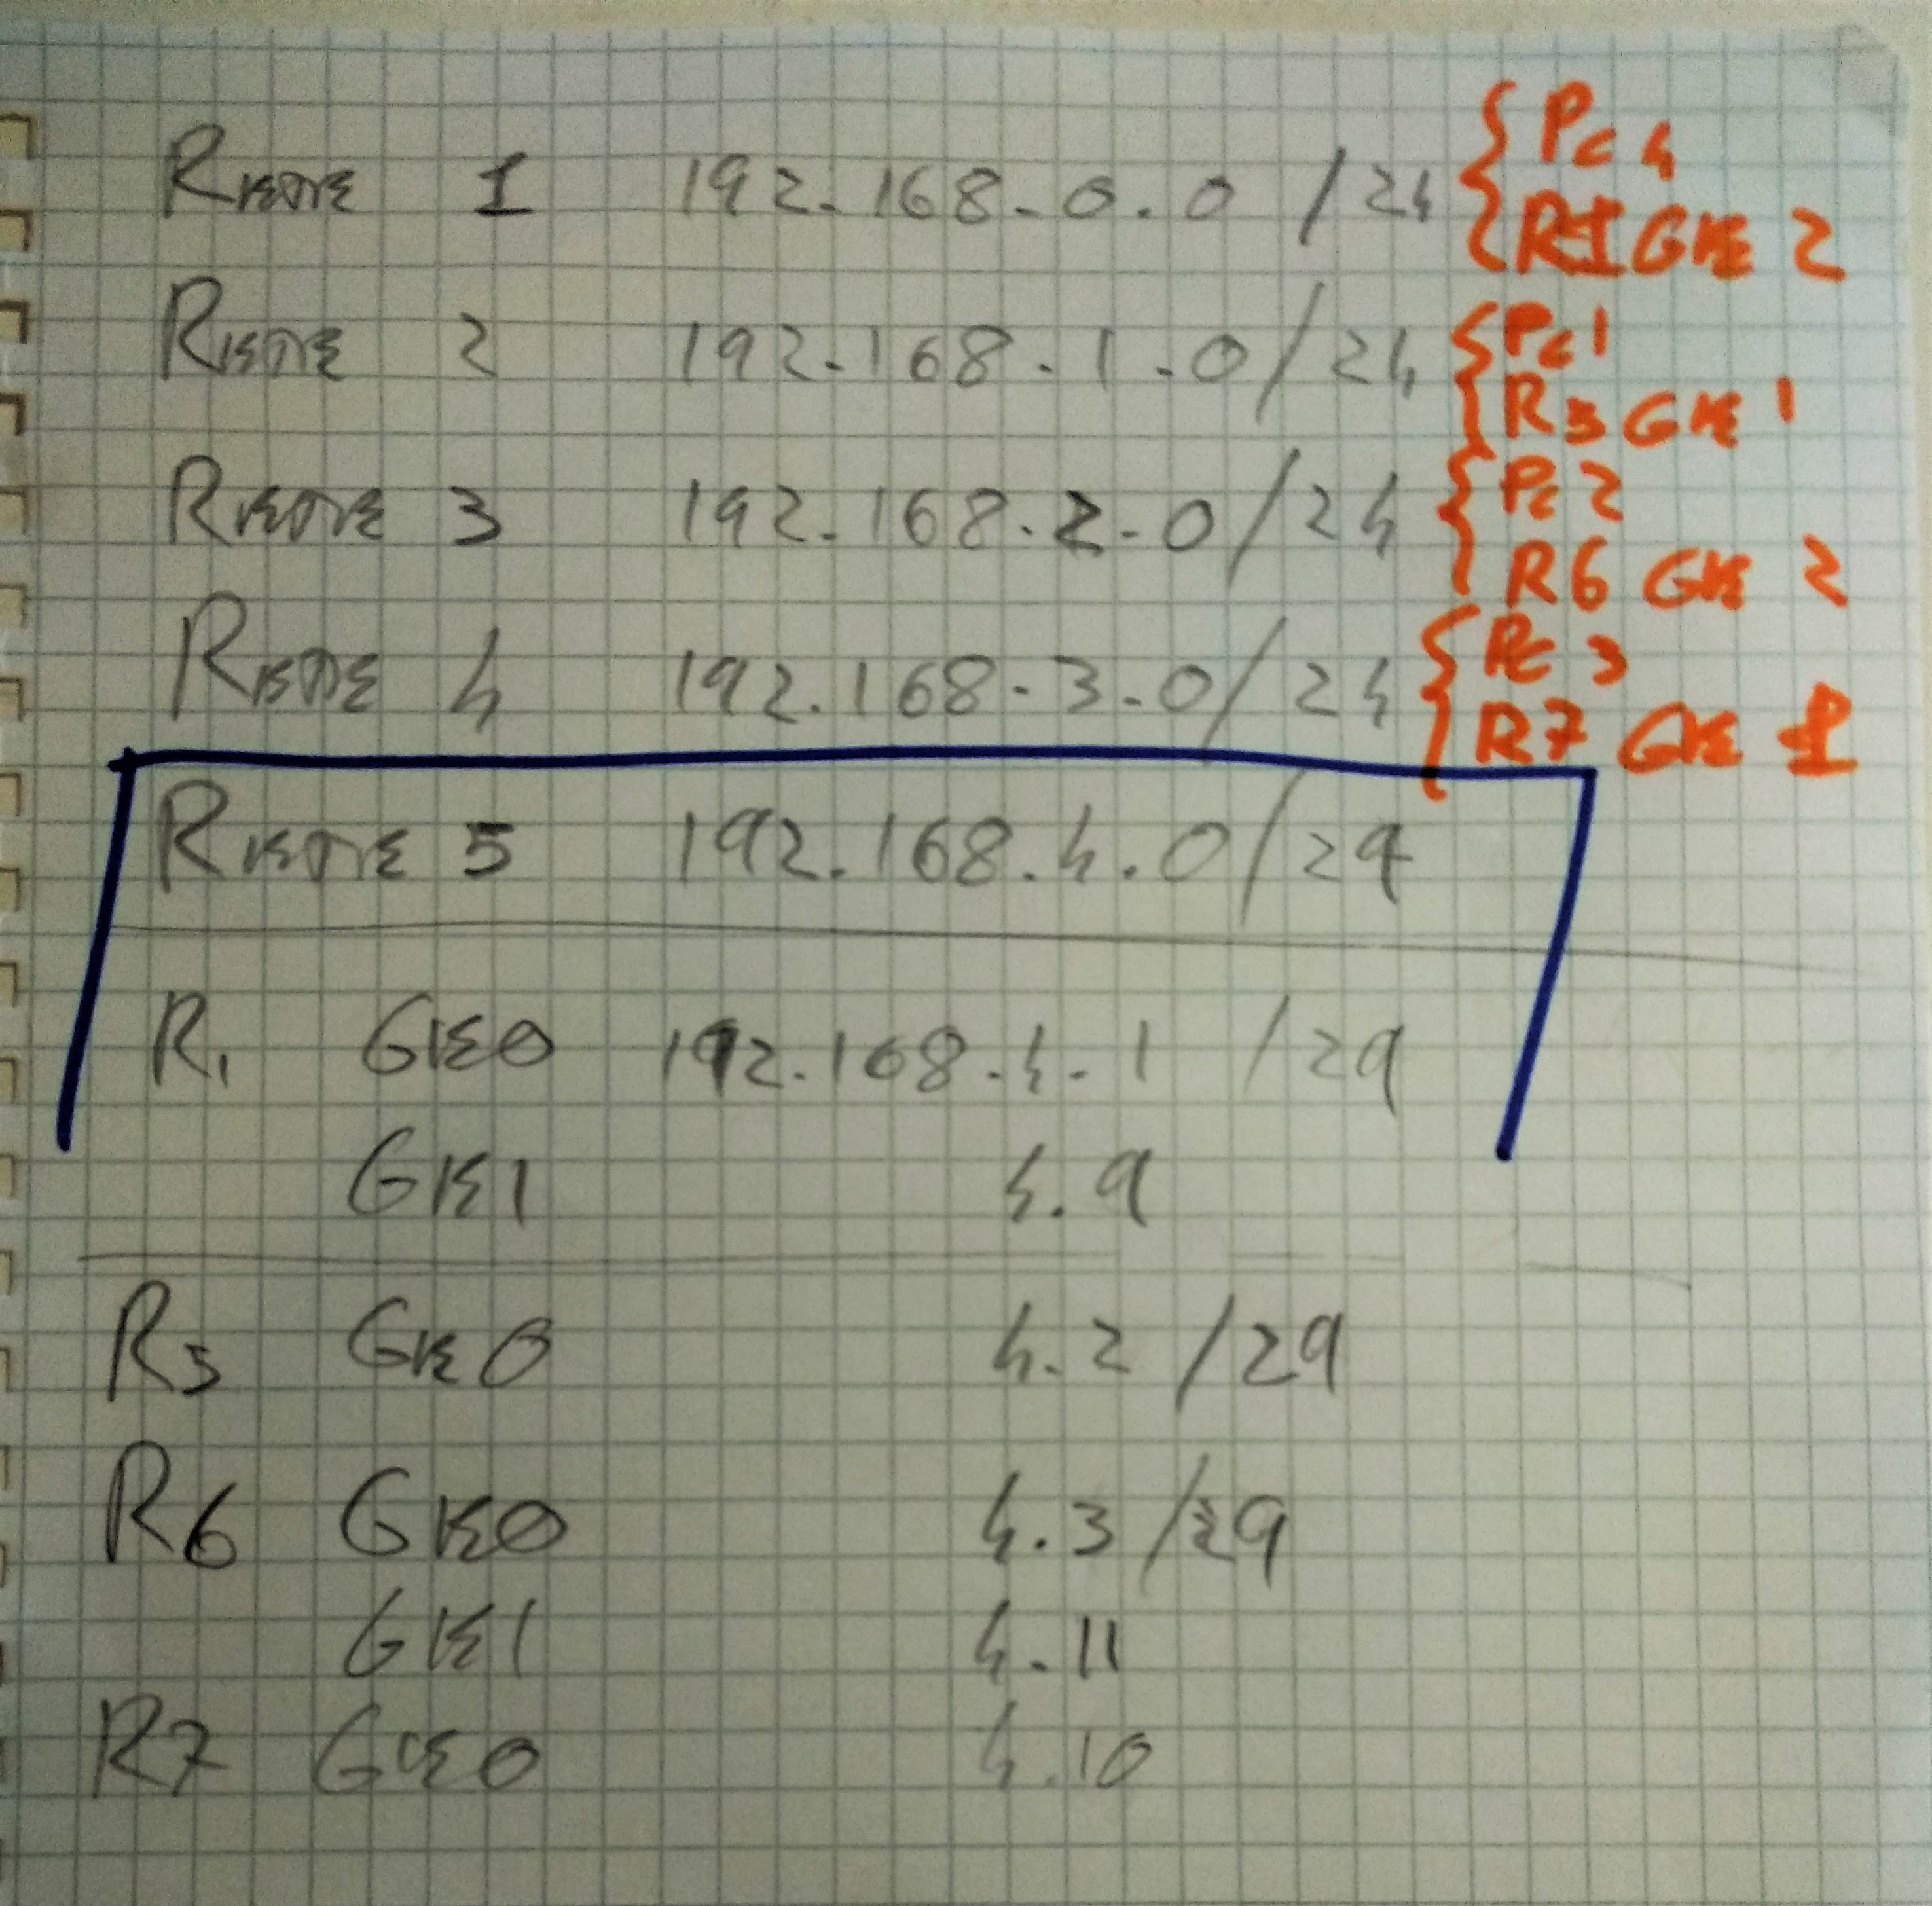 Rete 1 192.168.0.0 /24 { Pc 4
R1 GE 2
Rete 2 192.168.1.0/24 { Pc 1
R3 GE 1
Rete 3 192.168.2.0/24 { Pc 2
R6 GE 2
Rete 4 192.168.3.0/24 { Pc 3
R7 GE 1
Rete 5 192.168.4.0/29
R1 GE0 192.168.4.1 /29
GE1 4.9
R3 GE0 4.2 /29
R6 GE0 4.3 /29
GE1 4.11
R7 GE0 4.10